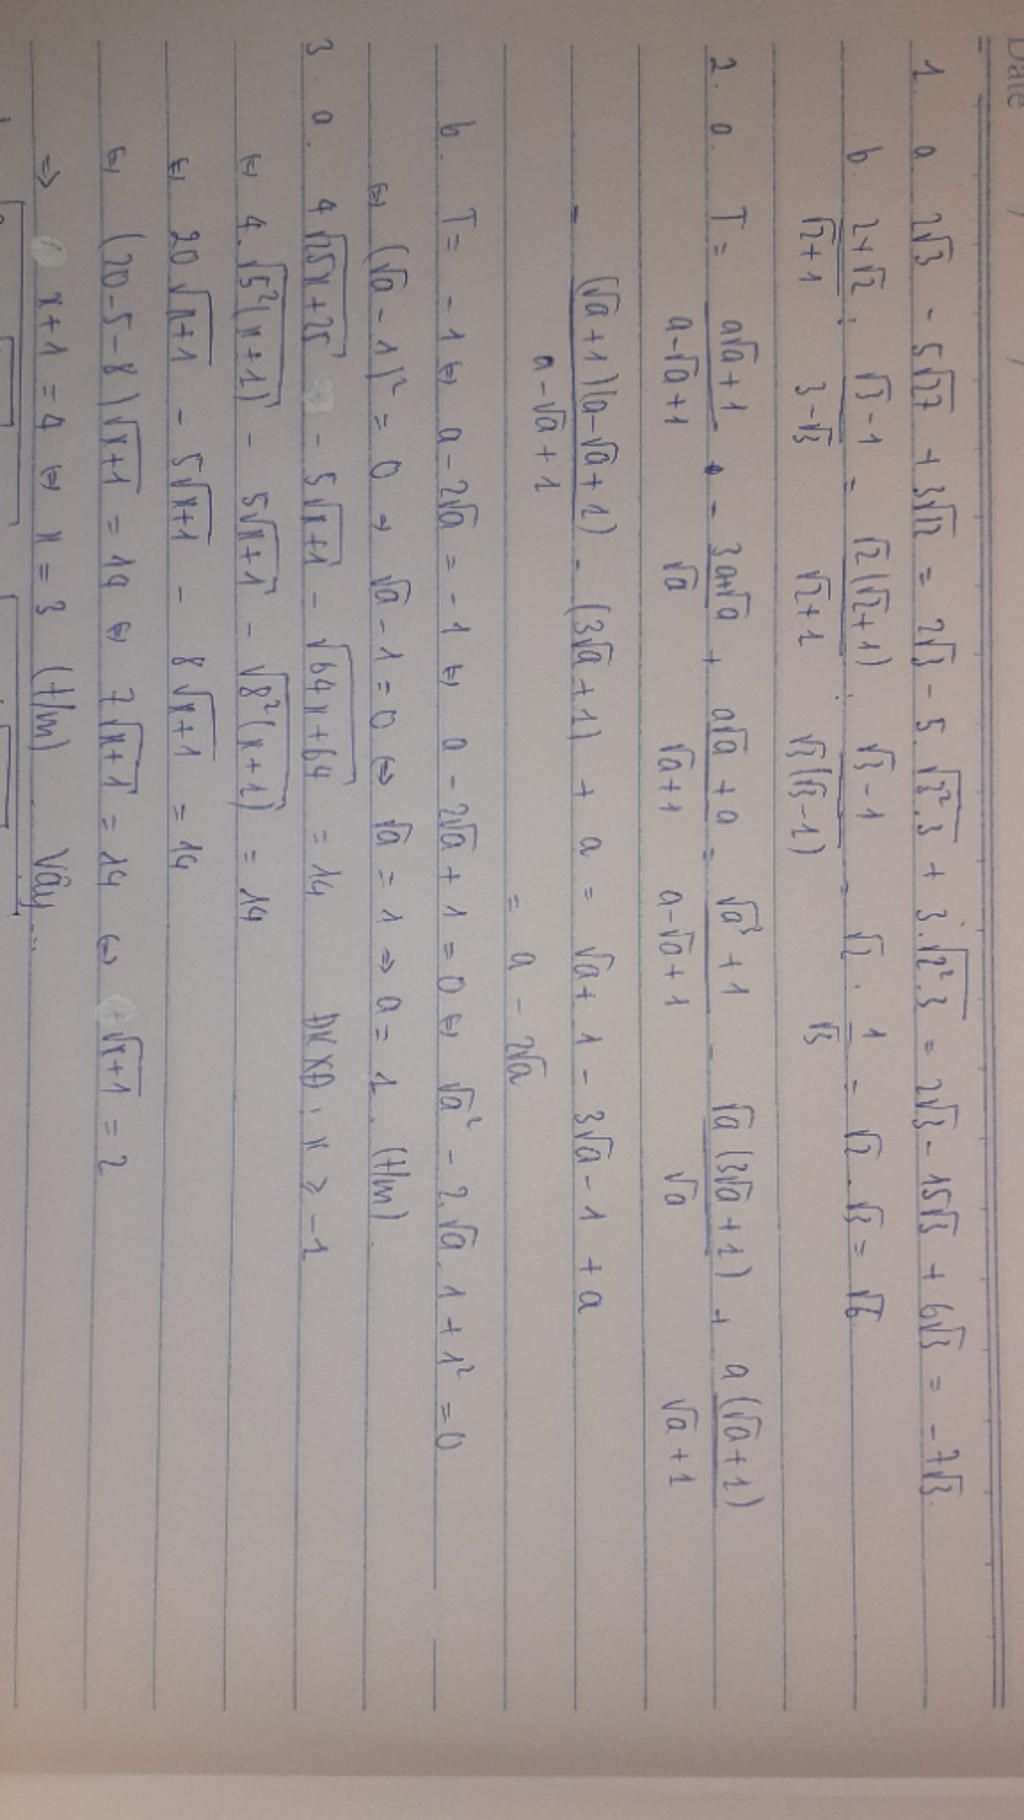 Date
1. a. 2√3 - 5√27 + 3√12 = 2√3 - 5.√3².3 + 3.√2².3 = 2√3 - 15√3 + 6√3 = -7√3.
b. (2+√2)/(√2+1) . (√3-1)/(3-√3) = √2(√2+1)/(√2+1) . (√3-1)/(√3(√3-1)) = √2 . 1/√3 = √2 . √3 = √6
2. a. T = (a√a+1)/(a-√a+1) - (3a+√a)/√a + (a√a+a)/(√a+1) = (√a³+1)/(a-√a+1) - √a(3√a+1)/√a + a(√a+1)/(√a+1)
= (√a+1)(a-√a+1)/(a-√a+1) - (3√a+1) + a = √a + 1 - 3√a - 1 + a
= a - 2√a
b. T = -1 ⇔ a - 2√a = -1 ⇔ a - 2√a + 1 = 0 ⇔ √a² - 2.√a.1 + 1² = 0
⇔ (√a - 1)² = 0 ⇒ √a - 1 = 0 ⇔ √a = 1 ⇒ a = 1. (t/m).
3. a. 4√25x+25 - 5√x+1 - √64x+64 = 14 ĐKXĐ: x ≥ -1
⇔ 4.√5²(x+1) - 5√x+1 - √8²(x+1) = 14
⇔ 20√x+1 - 5√x+1 - 8√x+1 = 14
⇔ (20-5-8)√x+1 = 14 ⇔ 7√x+1 = 14 ⇔ √x+1 = 2
⇒ x+1 = 4 ⇔ x = 3 (t/m). Vậy ...